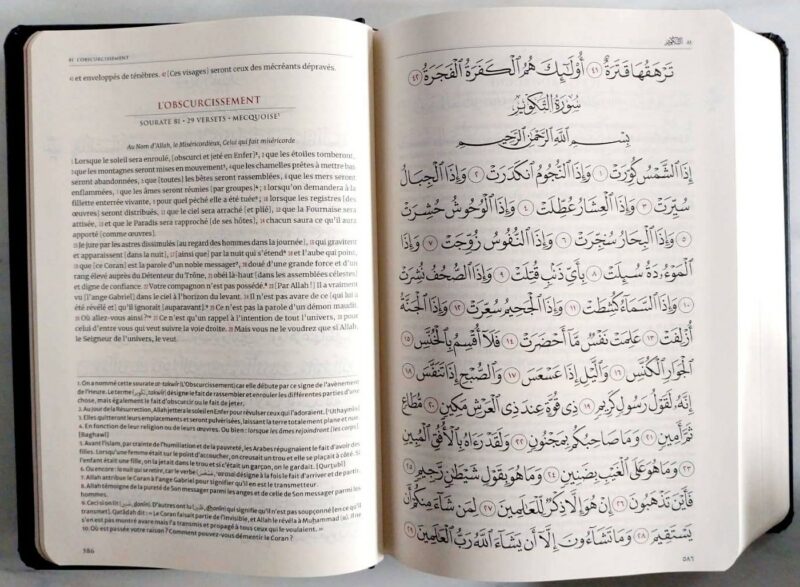 81 L'OBSCURCISSEMENT
41 et enveloppés de ténèbres. 42 [Ces visages] seront ceux des mécréants dépravés.
L'OBSCURCISSEMENT
SOURATE 81 • 29 VERSETS • MECQUOISE¹
Au Nom d'Allah, le Miséricordieux, Celui qui fait miséricorde
1 Lorsque le soleil sera enroulé, [obscurci et jeté en Enfer]², 2 que les étoiles tomberont,
3 que les montagnes seront mises en mouvement³, 4 que les chamelles prêtes à mettre bas
seront abandonnées, 5 que [toutes] les bêtes seront rassemblées, 6 que les mers seront
enflammées, 7 que les âmes seront réunies [par groupes]⁴ ; 8 lorsqu'on demandera à la
fillette enterrée vivante, 9 pour quel péché elle a été tuée⁵ ; 10 lorsque les registres [des
œuvres] seront distribués, 11 que le ciel sera arraché [et plié], 12 que la Fournaise sera
attisée, 13 et que le Paradis sera rapproché [de ses hôtes], 14 chacun saura ce qu'il aura
apporté [comme œuvres].
15 Je jure par les astres dissimulés [au regard des hommes dans la journée], 16 qui gravitent
et apparaissent [dans la nuit], 17 [ainsi que] par la nuit qui s'étend⁶ 18 et l'aube qui point,
19 que [ce Coran] est la parole d'un noble messager⁷, 20 doué d'une grande force et d'un
rang élevé auprès du Détenteur du Trône, 21 obéi là-haut [dans les assemblées célestes]
et digne de confiance. 22 Votre compagnon n'est pas possédé.⁸ 23 [Par Allah !] Il a vraiment
vu [l'ange Gabriel] dans le ciel à l'horizon du levant. 24 Il n'est pas avare de ce [qui lui a
été révélé et] qu'il ignorait [auparavant].⁹ 25 Ce n'est pas la parole d'un démon maudit.
26 Où allez-vous ainsi ?¹⁰ 27 Ce n'est qu'un rappel à l'intention de tout l'univers, 28 pour
celui d'entre vous qui veut suivre la voie droite. 29 Mais vous ne le voudrez que si Allah,
le Seigneur de l'univers, le veut.
1. On a nommé cette sourate at-takwîr (L'Obscurcissement) car elle débute par ce signe de l'avènement
de l'Heure. Le terme (تكوير, takwîr) désigne le fait de rassembler et enrouler les différentes parties d'une
chose, mais également le fait d'obscurcir ou le fait de jeter.
2. Au jour de la Résurrection, Allah jettera le soleil en Enfer pour révulser ceux qui l'adoraient. [ʿUthaymîn]
3. Elles quitteront leurs emplacements et seront pulvérisées, laissant la terre totalement plane et nue.
4. En fonction de leur religion ou de leurs œuvres. Ou bien : lorsque les âmes rejoindront [les corps].
[Baghawî]
5. Avant l'Islam, par crainte de l'humiliation et de la pauvreté, les Arabes répugnaient le fait d'avoir des
filles. Lorsqu'une femme était sur le point d'accoucher, on creusait un trou et elle se plaçait à côté. Si
l'enfant était une fille, on la jetait dans le trou et si c'était un garçon, on le gardait. [Qurṭubî]
6. Ou encore : la nuit qui se retire, car le verbe (عسعس, ʿasʿas) désigne à la fois le fait d'arriver et de partir.
7. Allah attribue le Coran à l'ange Gabriel pour signifier qu'il en est le transmetteur.
8. Allah témoigne de la pureté de Son messager parmi les anges et de celle de Son messager parmi les
hommes.
9. Ceci si on lit (ضنين, ḍanîn). D'autres ont lu qui signifie qu'il n'est pas soupçonné [en ce qu'il
dit]. Qatâdah dit : « Le Coran faisait partie de l'invisible, et Allah le révéla à Muḥammad. Il ne
s'en est pas montré avare mais l'a transmis et propagé à tous ceux qui le voulaient. »
10. Où est passée votre raison ? Comment pouvez-vous démentir le Coran ?
586
٨١ التكوير
تَرْهَقُهَا قَتَرَةٌ ٤١ أُوْلَٰٓئِكَ هُمُ ٱلْكَفَرَةُ ٱلْفَجَرَةُ ٤٢
سُورَةُ التَّكْوِيرِ
بِسْمِ ٱللَّهِ ٱلرَّحْمَٰنِ ٱلرَّحِيمِ
إِذَا ٱلشَّمْسُ كُوِّرَتْ ١ وَإِذَا ٱلنُّجُومُ ٱنكَدَرَتْ ٢ وَإِذَا ٱلْجِبَالُ
سُيِّرَتْ ٣ وَإِذَا ٱلْعِشَارُ عُطِّلَتْ ٤ وَإِذَا ٱلْوُحُوشُ حُشِرَتْ
٥ وَإِذَا ٱلْبِحَارُ سُجِّرَتْ ٦ وَإِذَا ٱلنُّفُوسُ زُوِّجَتْ ٧ وَإِذَا
ٱلْمَوْءُۥدَةُ سُئِلَتْ ٨ بِأَيِّ ذَنۢبٍ قُتِلَتْ ٩ وَإِذَا ٱلصُّحُفُ نُشِرَتْ
١٠ وَإِذَا ٱلسَّمَآءُ كُشِطَتْ ١١ وَإِذَا ٱلْجَحِيمُ سُعِّرَتْ ١٢ وَإِذَا ٱلْجَنَّةُ
أُزْلِفَتْ ١٣ عَلِمَتْ نَفْسٌ مَّآ أَحْضَرَتْ ١٤ فَلَآ أُقْسِمُ بِٱلْخُنَّسِ ١٥
ٱلْجَوَارِ ٱلْكُنَّسِ ١٦ وَٱلَّيْلِ إِذَا عَسْعَسَ ١٧ وَٱلصُّبْحِ إِذَا تَنَفَّسَ ١٨
إِنَّهُۥ لَقَوْلُ رَسُولٍ كَرِيمٍ ١٩ ذِي قُوَّةٍ عِندَ ذِي ٱلْعَرْشِ مَكِينٍ ٢٠ مُّطَاعٍ
ثَمَّ أَمِينٍ ٢١ وَمَا صَاحِبُكُم بِمَجْنُونٍ ٢٢ وَلَقَدْ رَءَاهُ بِٱلْأُفُقِ ٱلْمُبِينِ
٢٣ وَمَا هُوَ عَلَى ٱلْغَيْبِ بِضَنِينٍ ٢٤ وَمَا هُوَ بِقَوْلِ شَيْطَٰنٍ رَّجِيمٍ ٢٥
فَأَيْنَ تَذْهَبُونَ ٢٦ إِنْ هُوَ إِلَّا ذِكْرٌ لِّلْعَٰلَمِينَ ٢٧ لِمَن شَآءَ مِنكُمْ أَن
يَسْتَقِيمَ ٢٨ وَمَا تَشَآءُونَ إِلَّآ أَن يَشَآءَ ٱللَّهُ رَبُّ ٱلْعَٰلَمِينَ ٢٩
٥٨٦